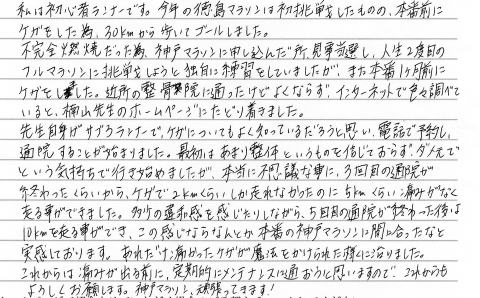 私は初心者ランナーです。今年の徳島マラソンは初挑戦したものの、本番前に
ケガをした為、30kmから歩いてゴールしました。
不完全燃焼だった為、神戸マラソンに申し込んだ所、見事当選し、人生2度目の
フルマラソンに挑戦しようと独自に練習をしていましたが、また本番1ヶ月前に
ケガをしました。近所の整骨院に通ったけどよくならず、インターネットで色々調べて
いると、楠山先生のホームページにたどり着きました。
先生自身がサブ3ランナーで、ケガについてもよく知っているだろうと思い、電話で予約し、
通院することが始まりました。最初はあまり整体というものを信じておらず、ダメ元で
という気持ちで行き始めましたが、本当に不思議な事に、3回目の通院が
終わったくらいから、ケガで2kmくらいしか走れなかったのに5kmくらい痛みがなく
走る事ができました。多少の違和感を感じたりしながら、5回目の通院が終わった後は
10kmを走る事ができ、この感じならなんとか本番の神戸マラソンに間に合ったなと
実感しております。あれだけ痛かったケガが魔法をかけられた様に治りました。
これからは痛みが出る前に、定期的にメンテナンスに通おうと思いますので、これからも
よろしくお願いします。神戸マラソン、頑張ってきます!